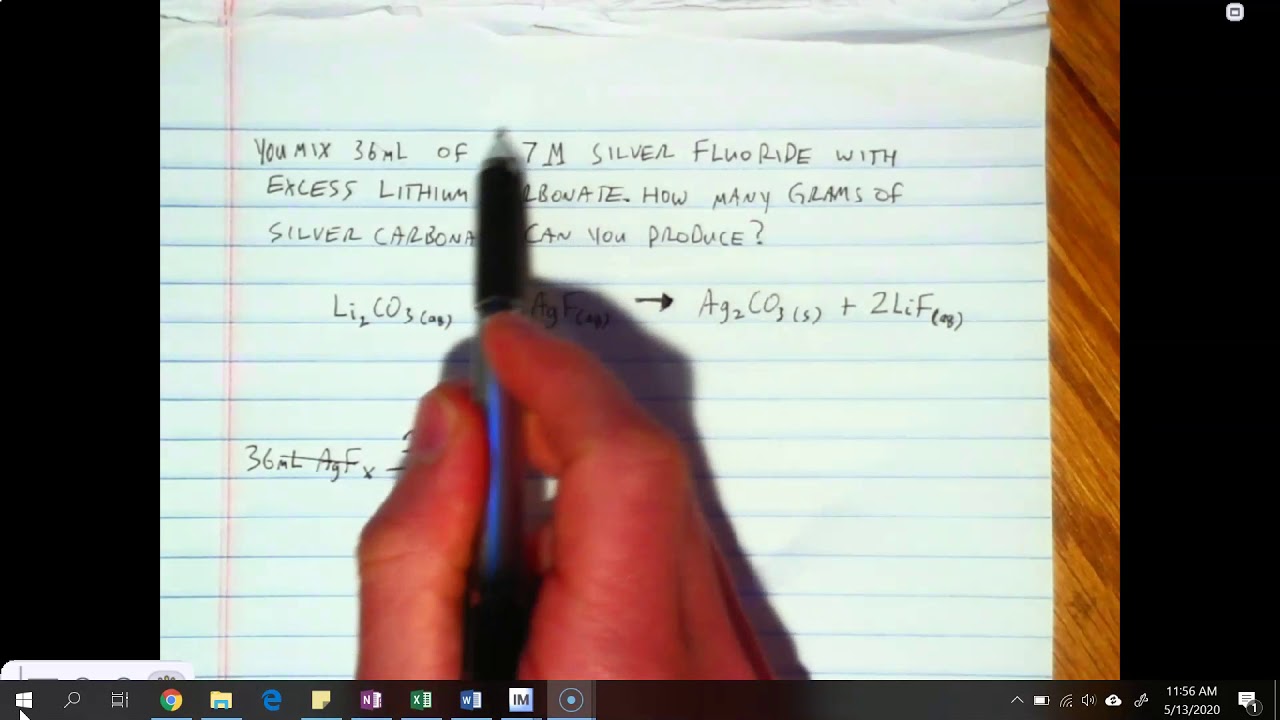 YOU MIX 36mL OF 7 M SILVER FLUORIDE WITH
EXCESS LITHIUM RBONATE. HOW MANY GRAMS OF
SILVER CARBONA CAN YOU PRODUCE?
Li₂CO₃(aq) AgF(aq) → Ag₂CO₃(s) + 2LiF(aq)
36mL AgF x
IM
11:56 AM
5/13/2020
1